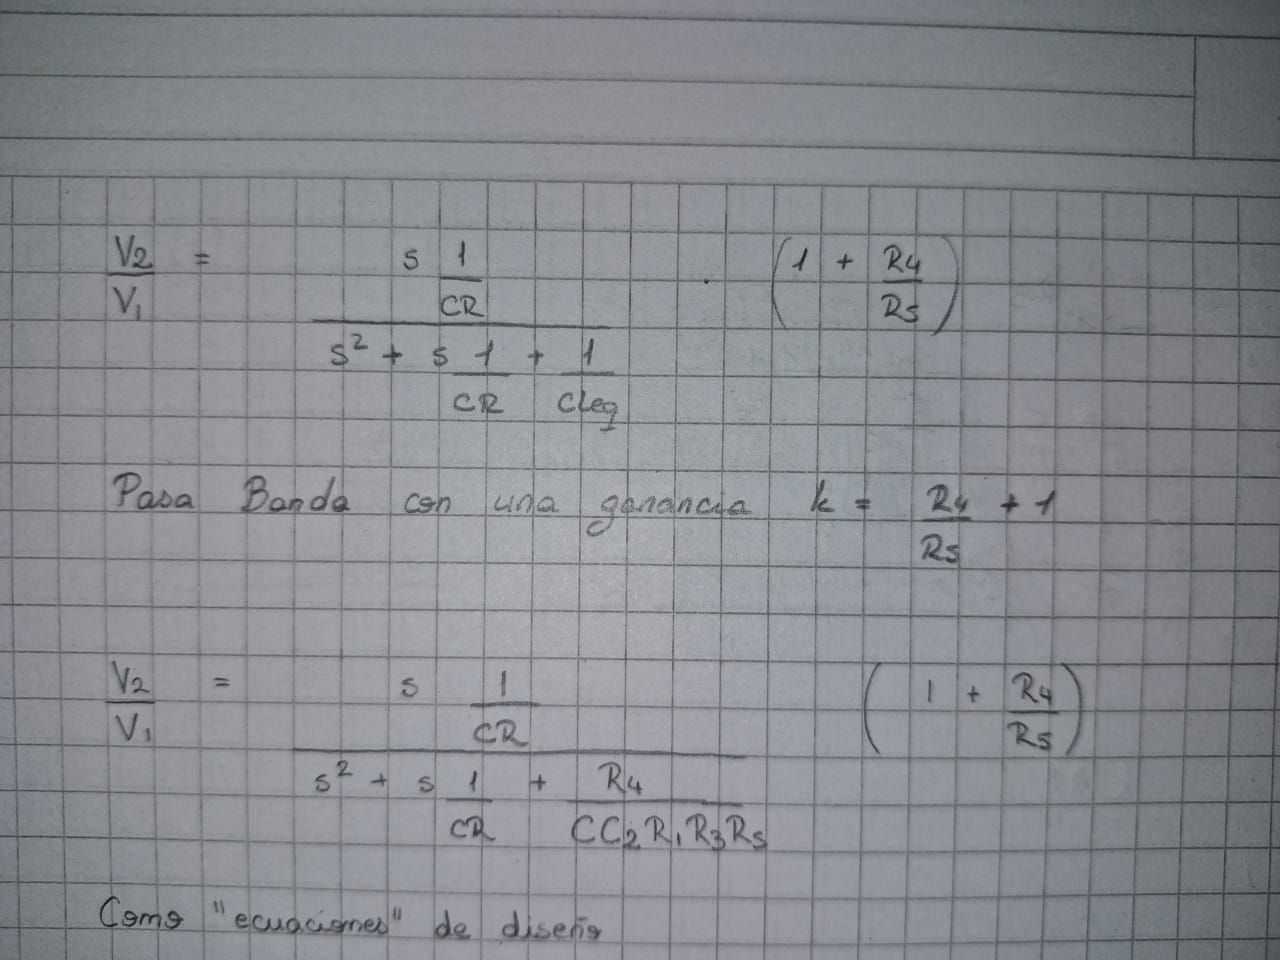 V2/V1 = (s 1/CR) / (s² + s 1/CR + 1/CLeq) · (1 + R4/R5)
Pasa Banda con una ganancia k = R4/R5 + 1
V2/V1 = (s 1/CR) / (s² + s 1/CR + R4/CC2R1R3R5) (1 + R4/R5)
Como "ecuaciones" de diseño